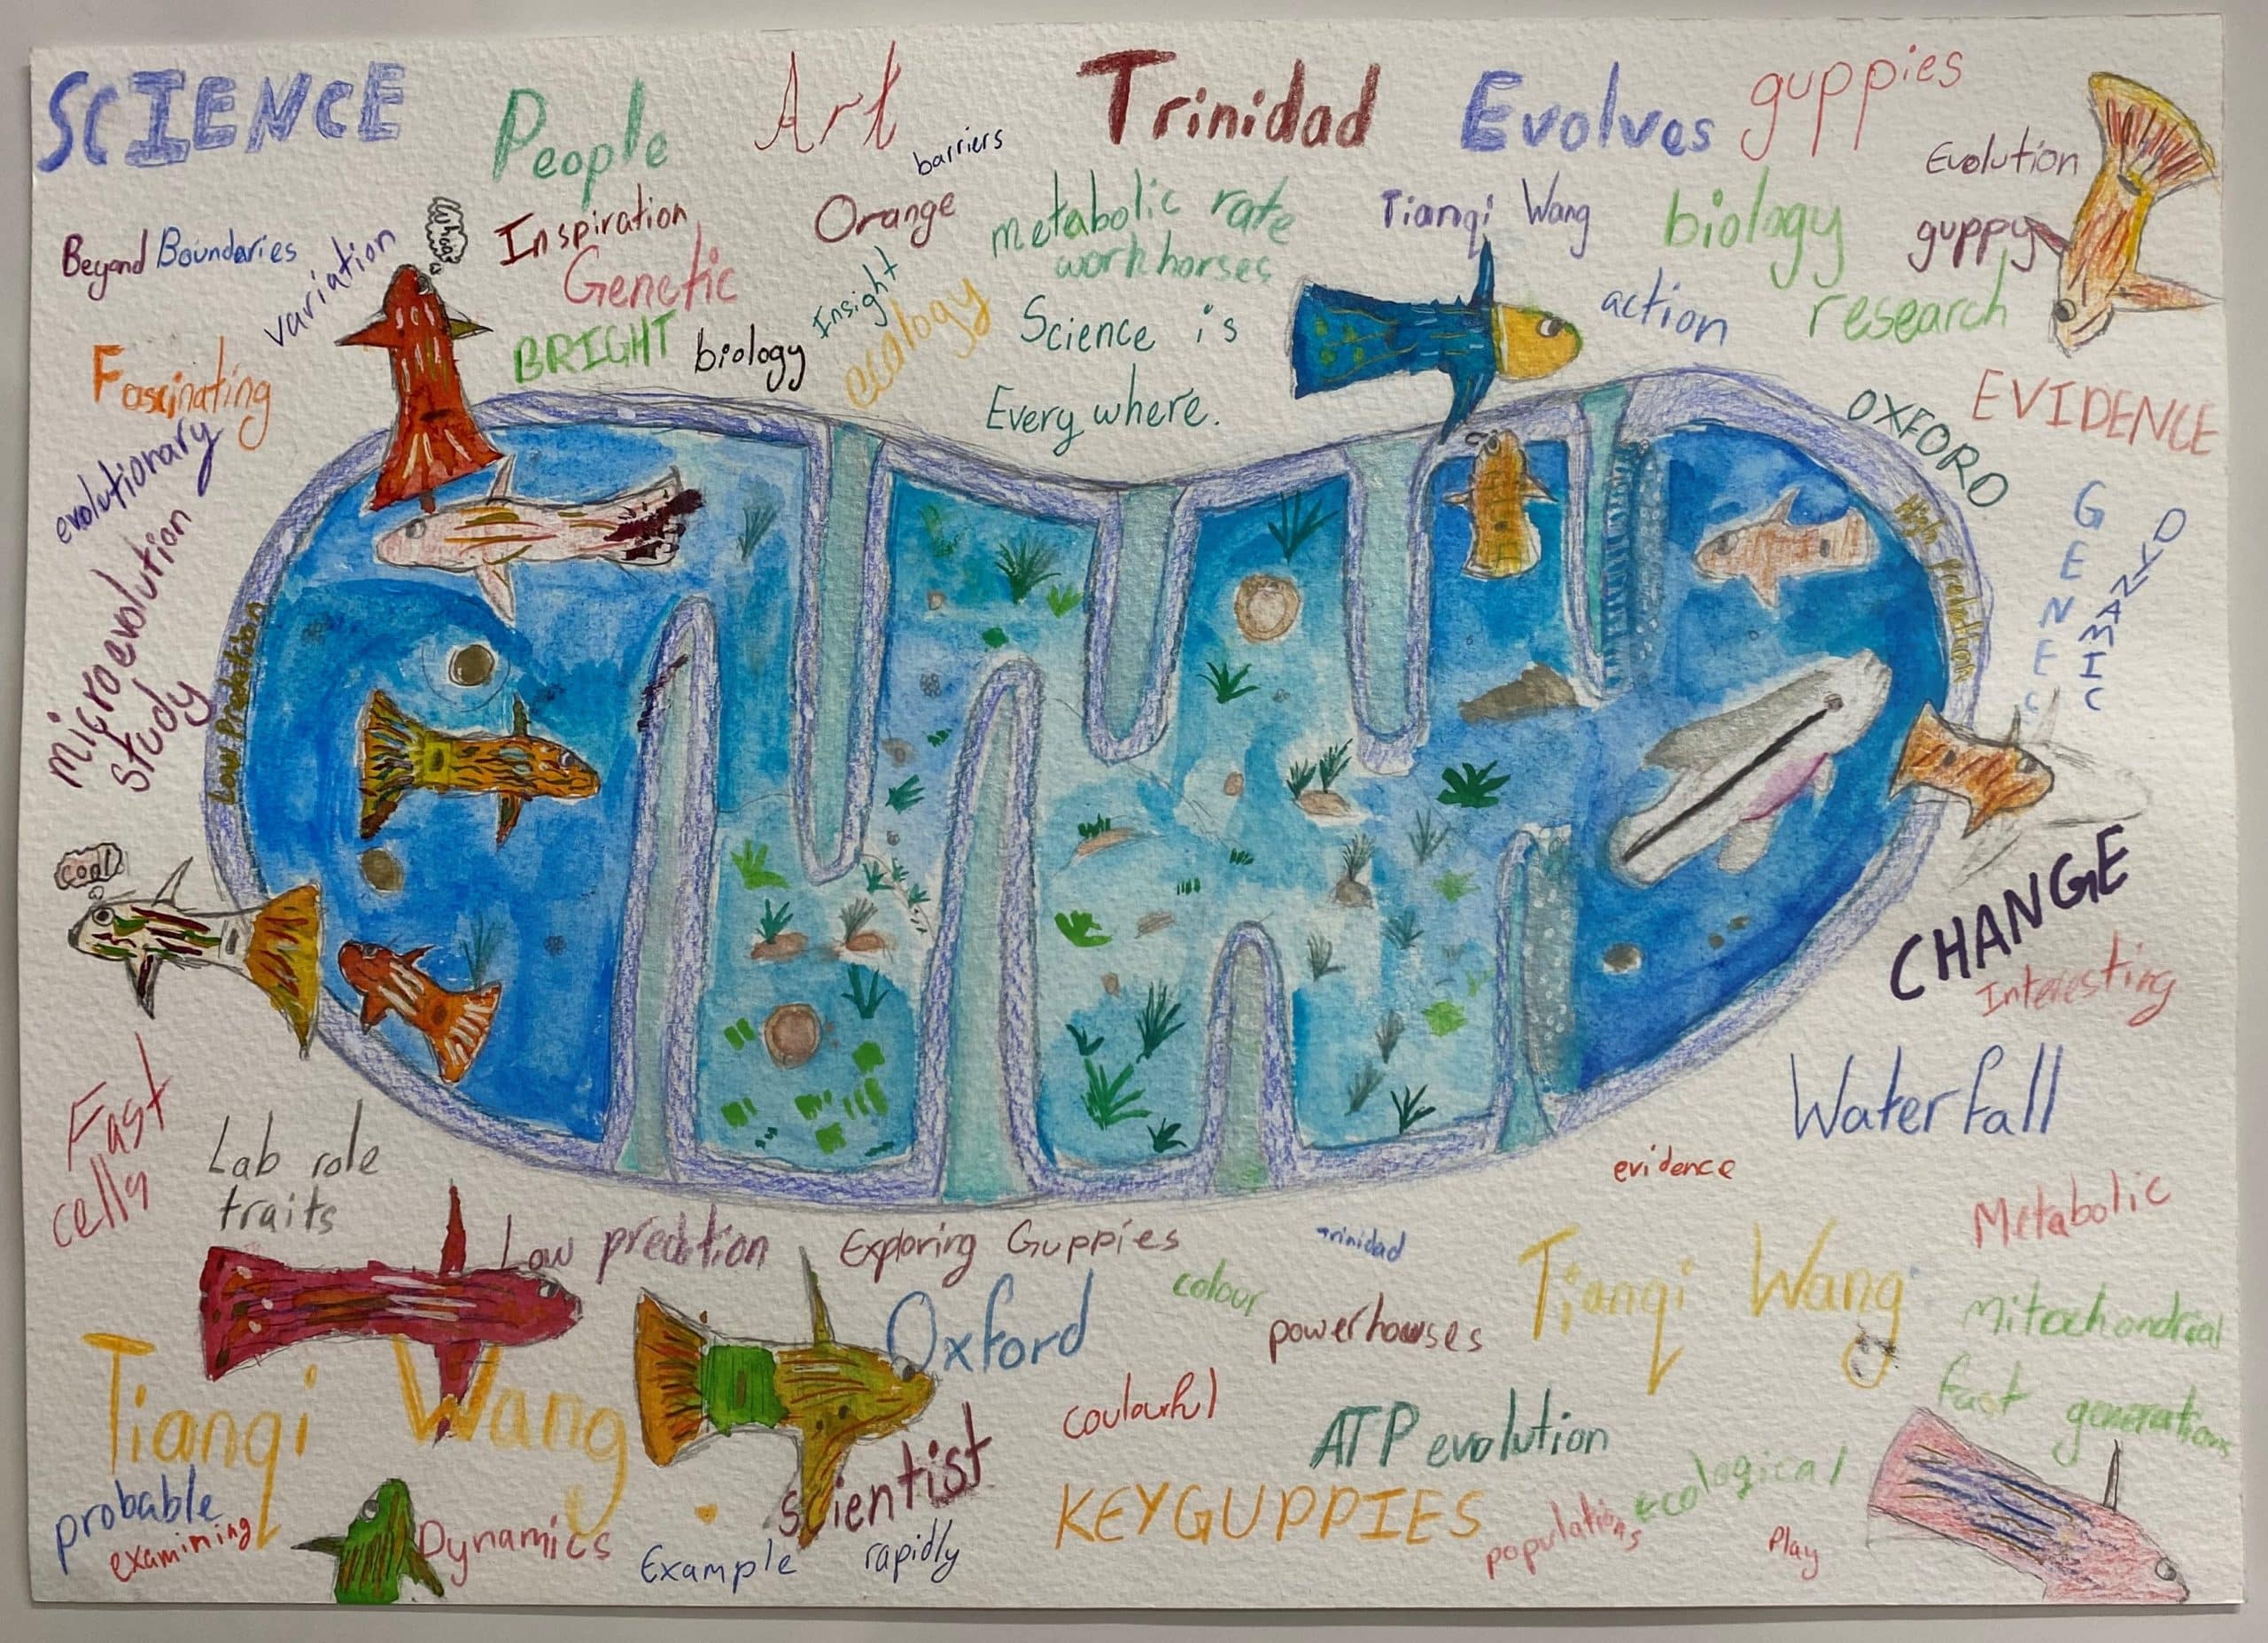 SCIENCE
People
Art
Trinidad
Evolves
guppies
barriers
Evolution
Beyond Boundaries
variation
Inspiration
Orange
metabolic rate
workhorses
Tianqi Wang
biology
guppy
Genetic
Insight
ecology
action
research
Fascinating
BRIGHT
biology
Science is
Every where.
OXFORD
EVIDENCE
evolutionary
microevolution
study
Low Predation
High Predation
GENEC
DYNAMIC
cool!
CHANGE
Interesting
Fast
cells
Waterfall
Lab role
traits
evidence
Metabolic
Low predation
Exploring Guppies
Trinidad
colour
Oxford
powerhouses
Tianqi Wang
mitochondrial
Tianqi Wang
coulourful
fast generations
ATP evolution
scientist
ecological
probable
KEYGUPPIES
populations
examining
Dynamics
Example
rapidly
Play